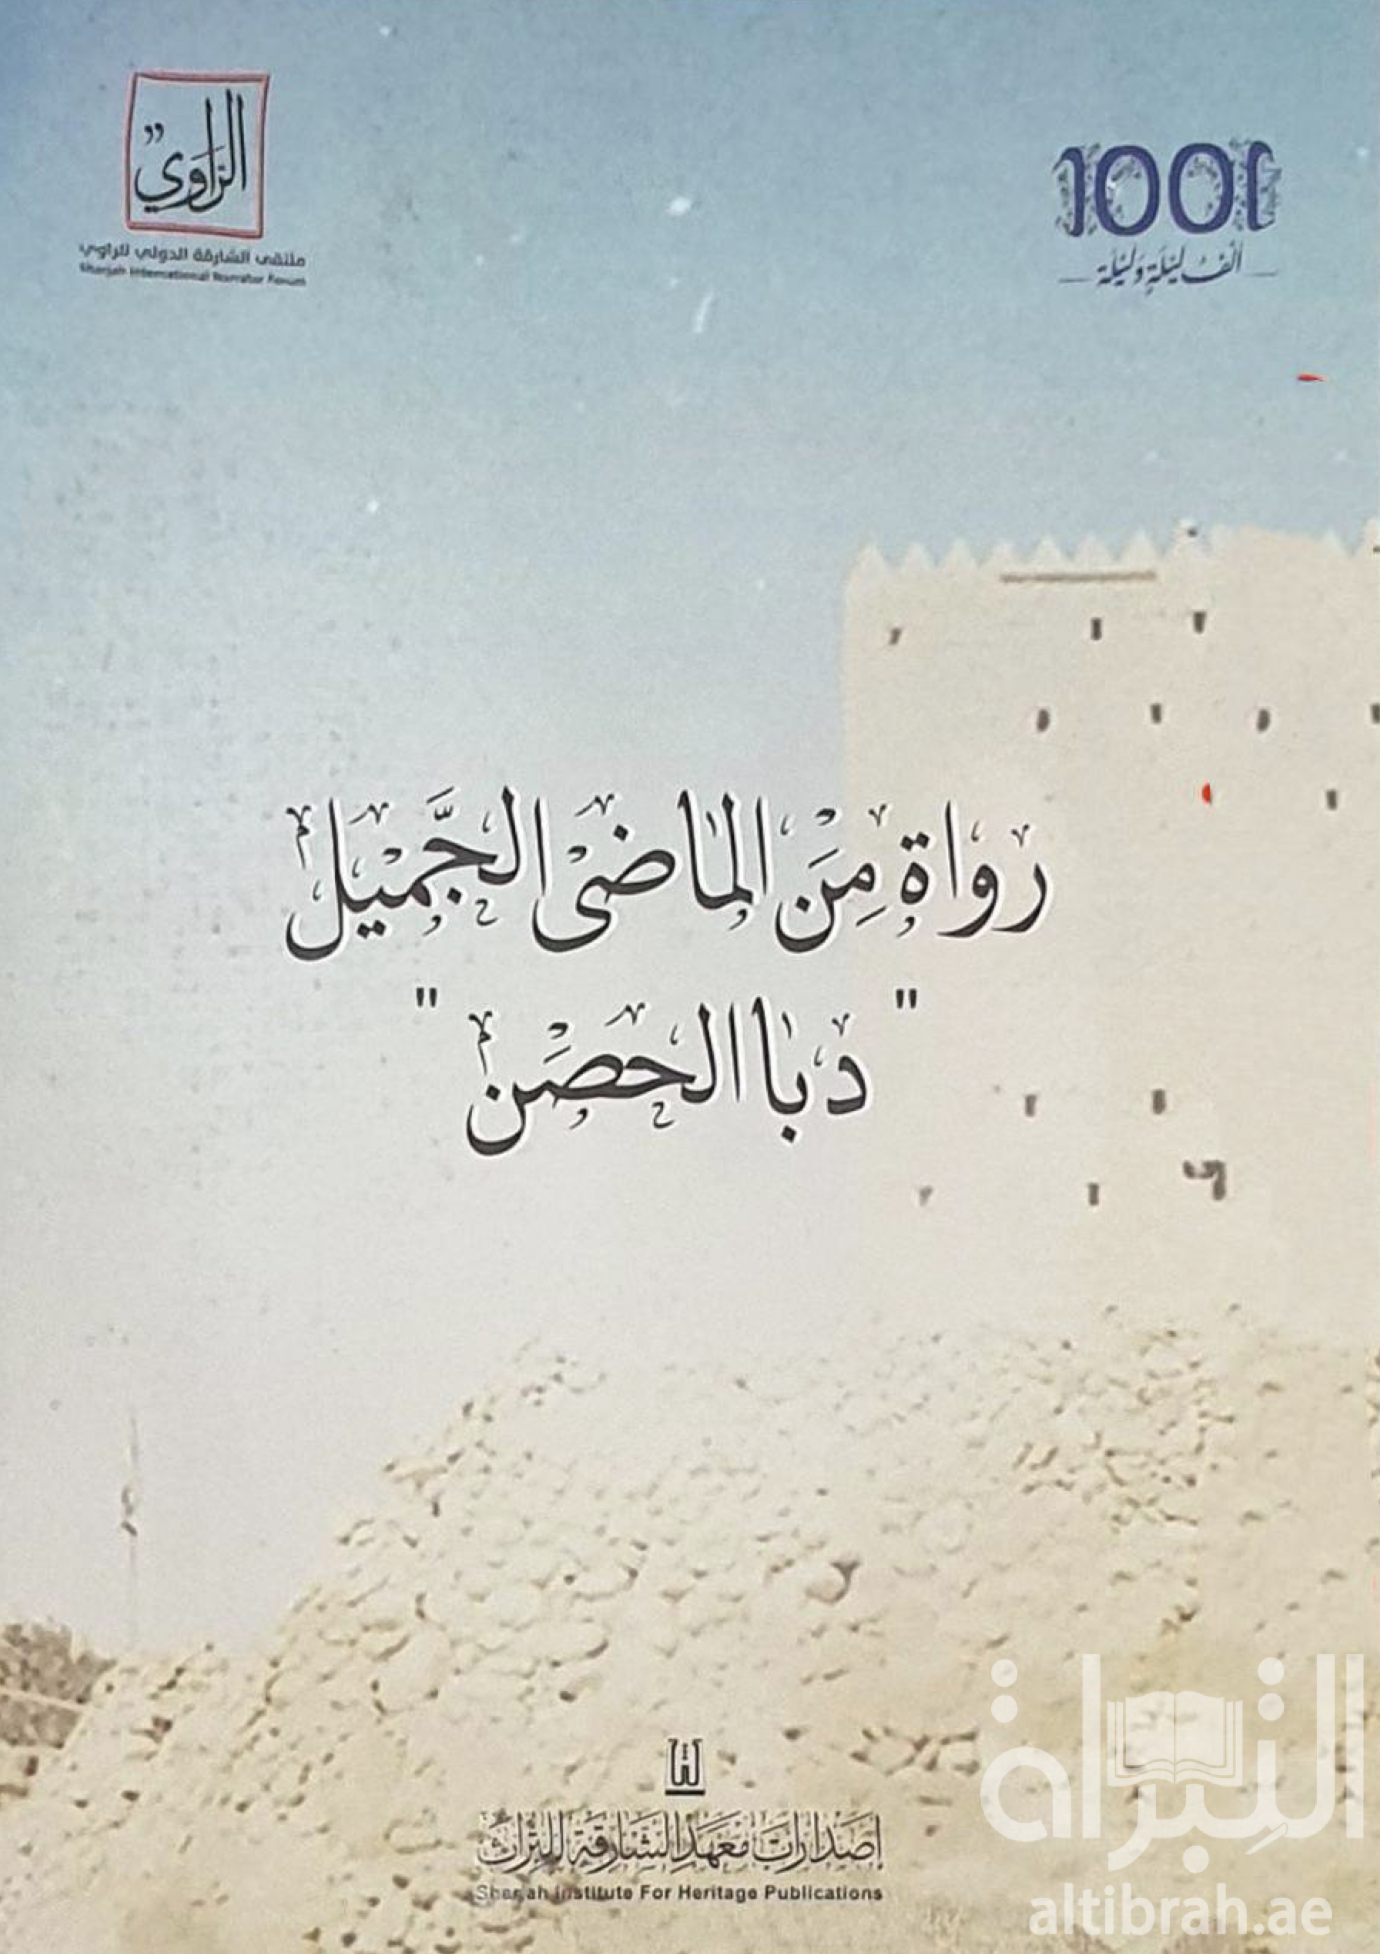 الراوي
ملتقى الشارقة الدولي للراوي
Sharjah International Narrator Forum
1001
ألف ليلة وليلة
رواة مِنَ الماضي الجَّميل
" دبا الحصَن "
إصدارات معهد الشارقة للتراث
Sharjah Institute For Heritage Publications
التبراة
altibrah.ae